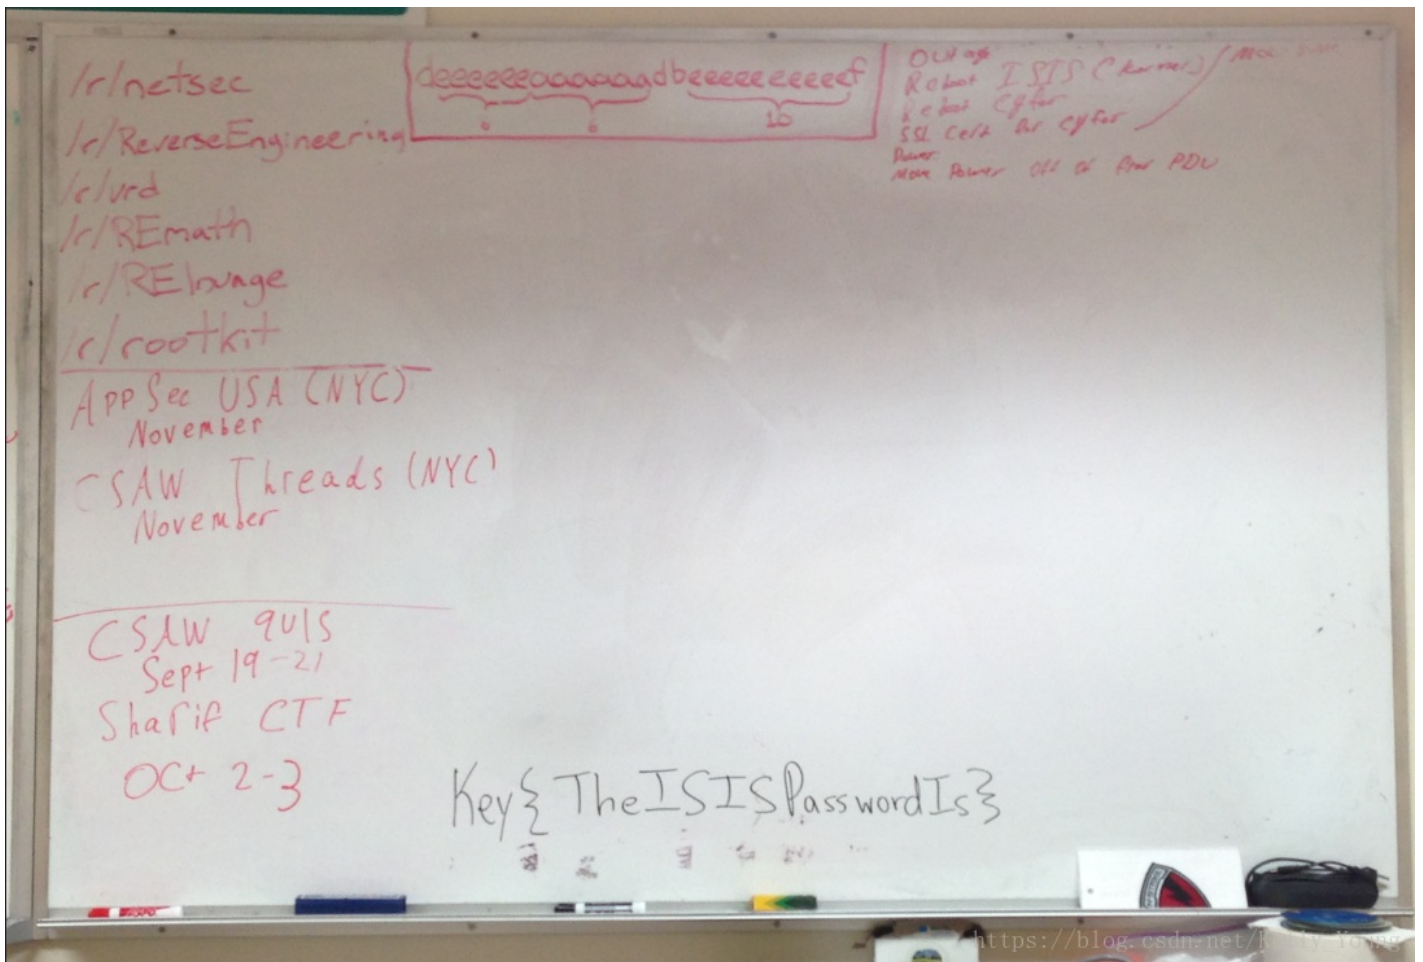 /r/netsec
/r/ReverseEngineering
/r/vrd
/r/REmath
/r/RElounge
/r/rootkit
AppSec USA (NYC)
November
CSAW Threads (NYC)
November
CSAW quls
Sept 19-21
Sharif CTF
Oct 2-3
deeeeeeaaaaaadbeeeeeeeeeef
6 6 10
Outage
Reboot ISIS (Kernel)
Reboot Cyfor
SSL Cert for Cyfor
Power
Move Power off of Rear PDU
Key{TheISISPasswordIs}
https://blog.csdn.net/